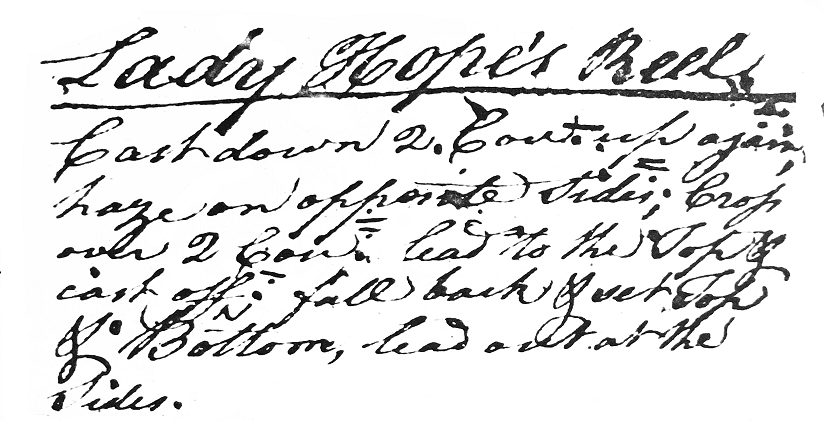 Lady Hope's Reel
Cast down 2. Cou: up again,
haze on opposite Sides; Crop
over 2 Cou: lead to the Top &
cast off: fall back & set Top
& Bottom, lead out at the
Sides.